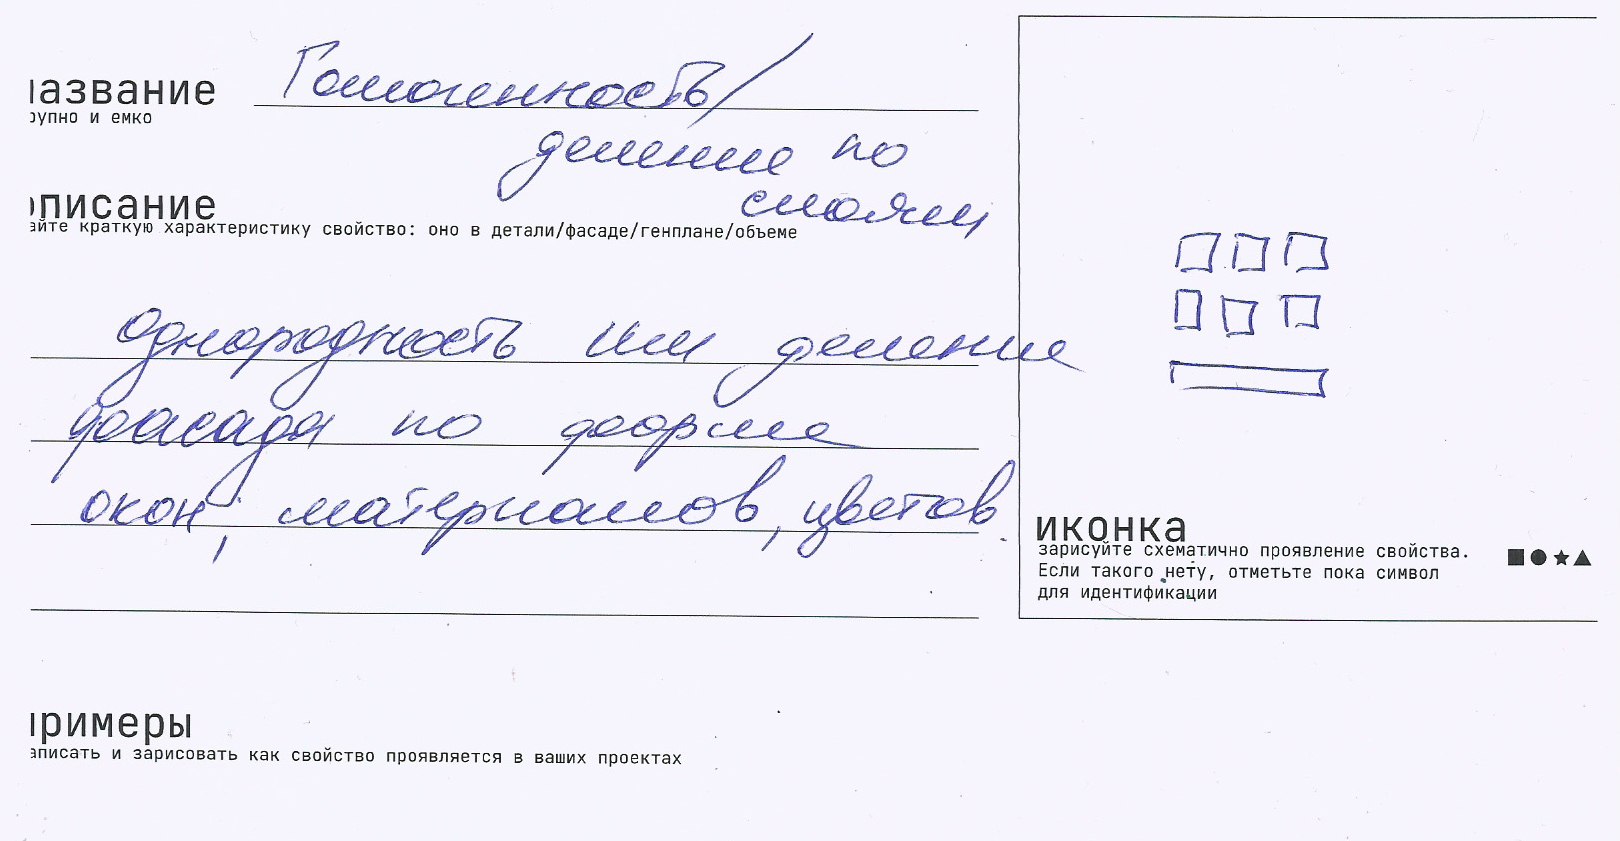 название Гомогенность/
крупно и емко
деление по
слоям
описание
дайте краткую характеристику свойство: оно в детали/фасаде/генплане/объеме
однородность или деление
фасада по форме
окон, материалов, цветов.
иконка
зарисуйте схематично проявление свойства.
Если такого нету, отметьте пока символ
для идентификации
примеры
записать и зарисовать как свойство проявляется в ваших проектах